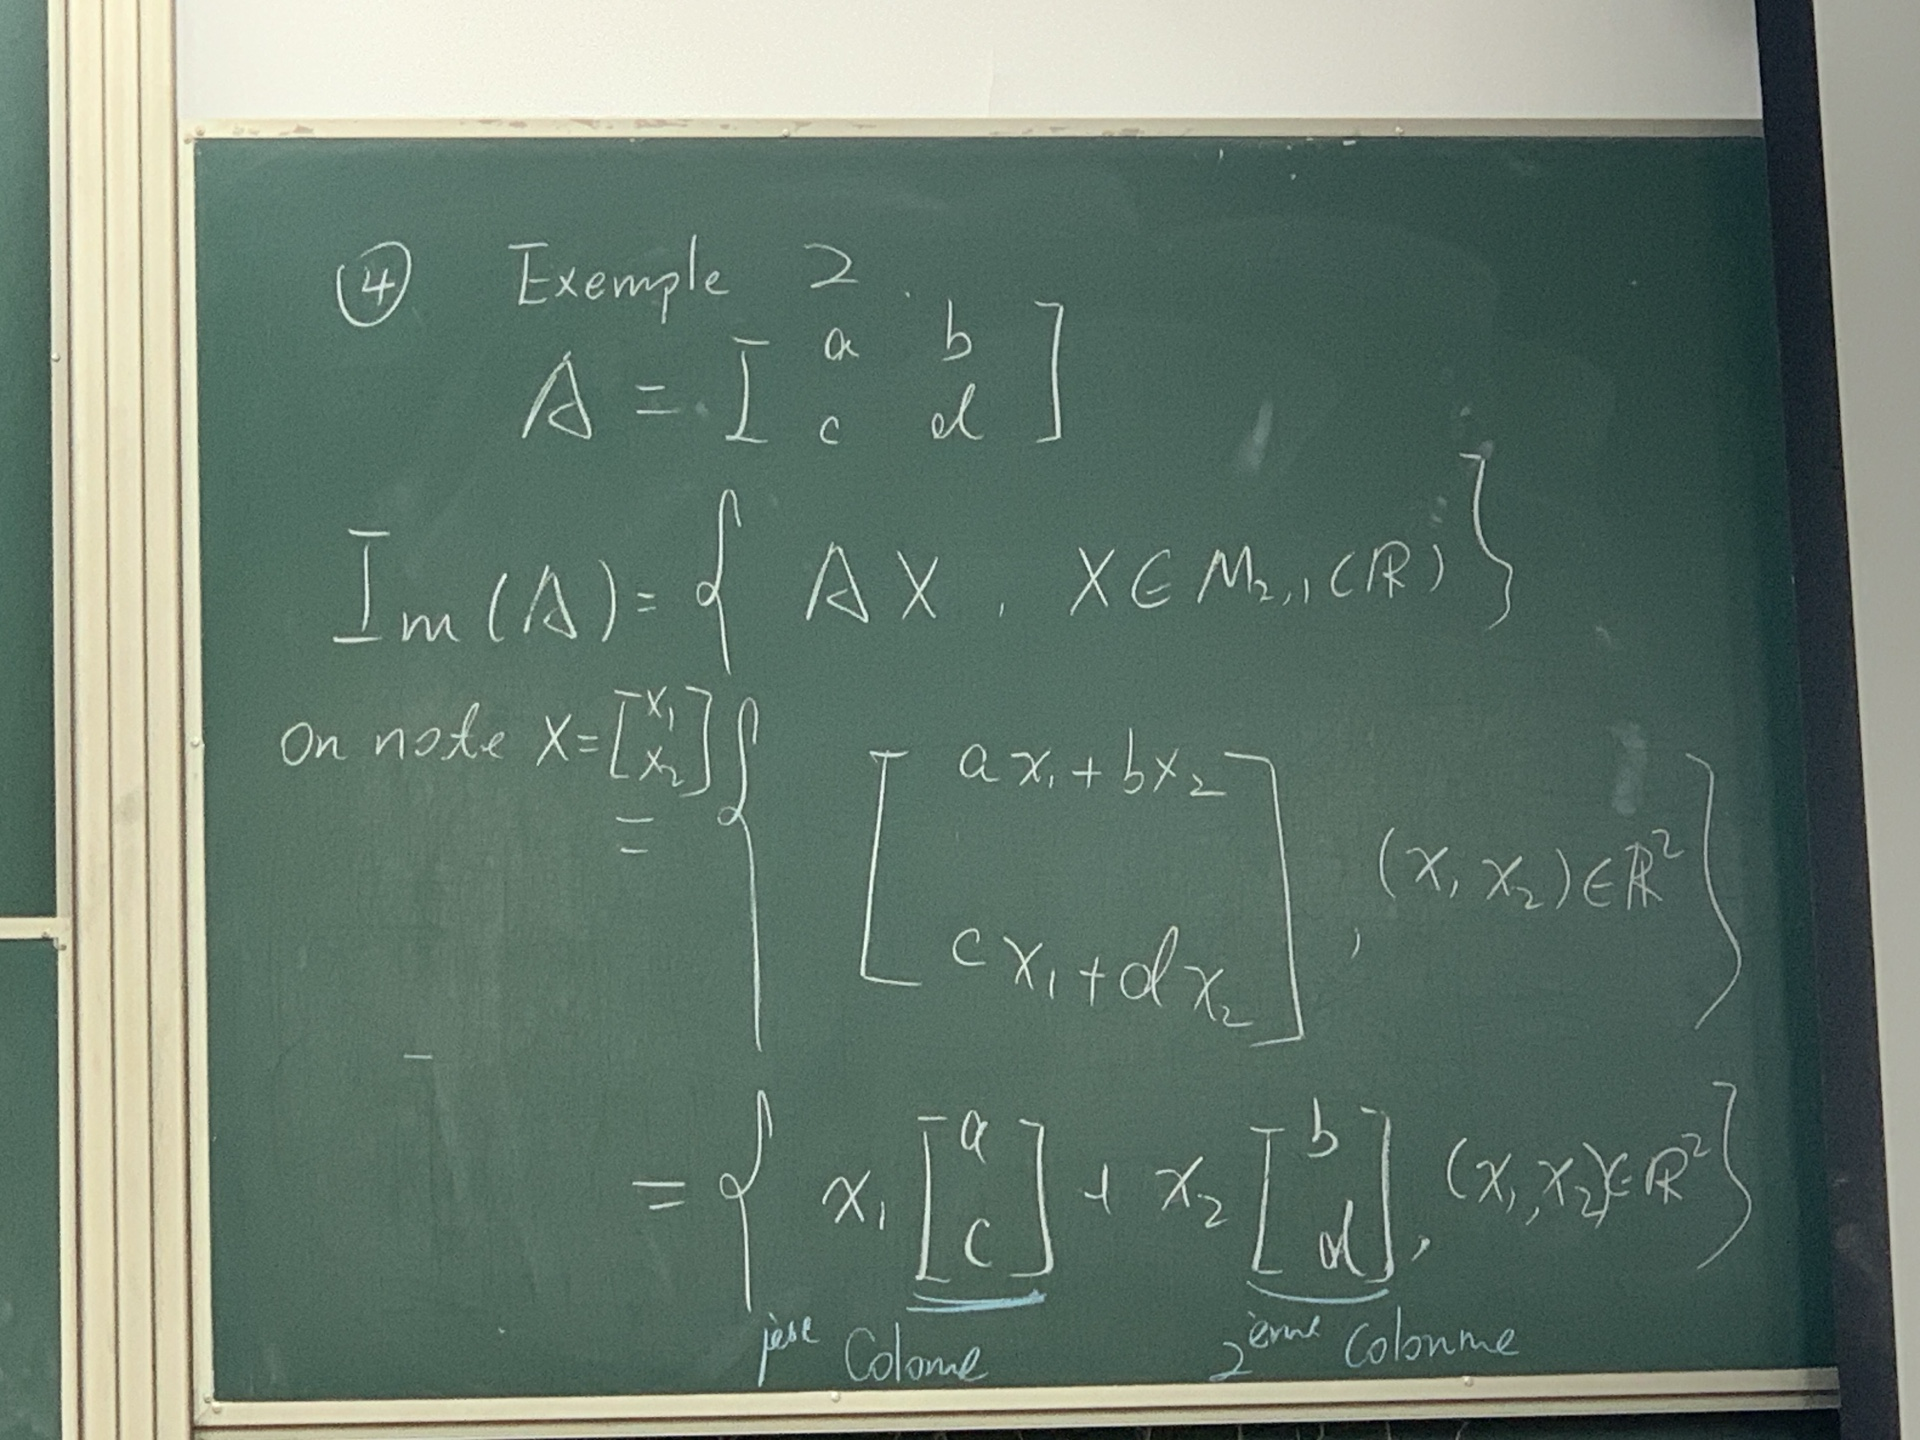 ④ Exemple 2.
A = [ a b
c d ]
Im(A) = { AX, X ∈ M₂,₁(ℝ) }
on note X = [ x₁
x₂ ]
= { [ ax₁ + bx₂
cx₁ + dx₂ ], (x₁ x₂) ∈ ℝ² }
= { x₁ [ a
c ] + x₂ [ b
d ], (x₁, x₂) ∈ ℝ² }
1ère Colonne 2ème Colonne